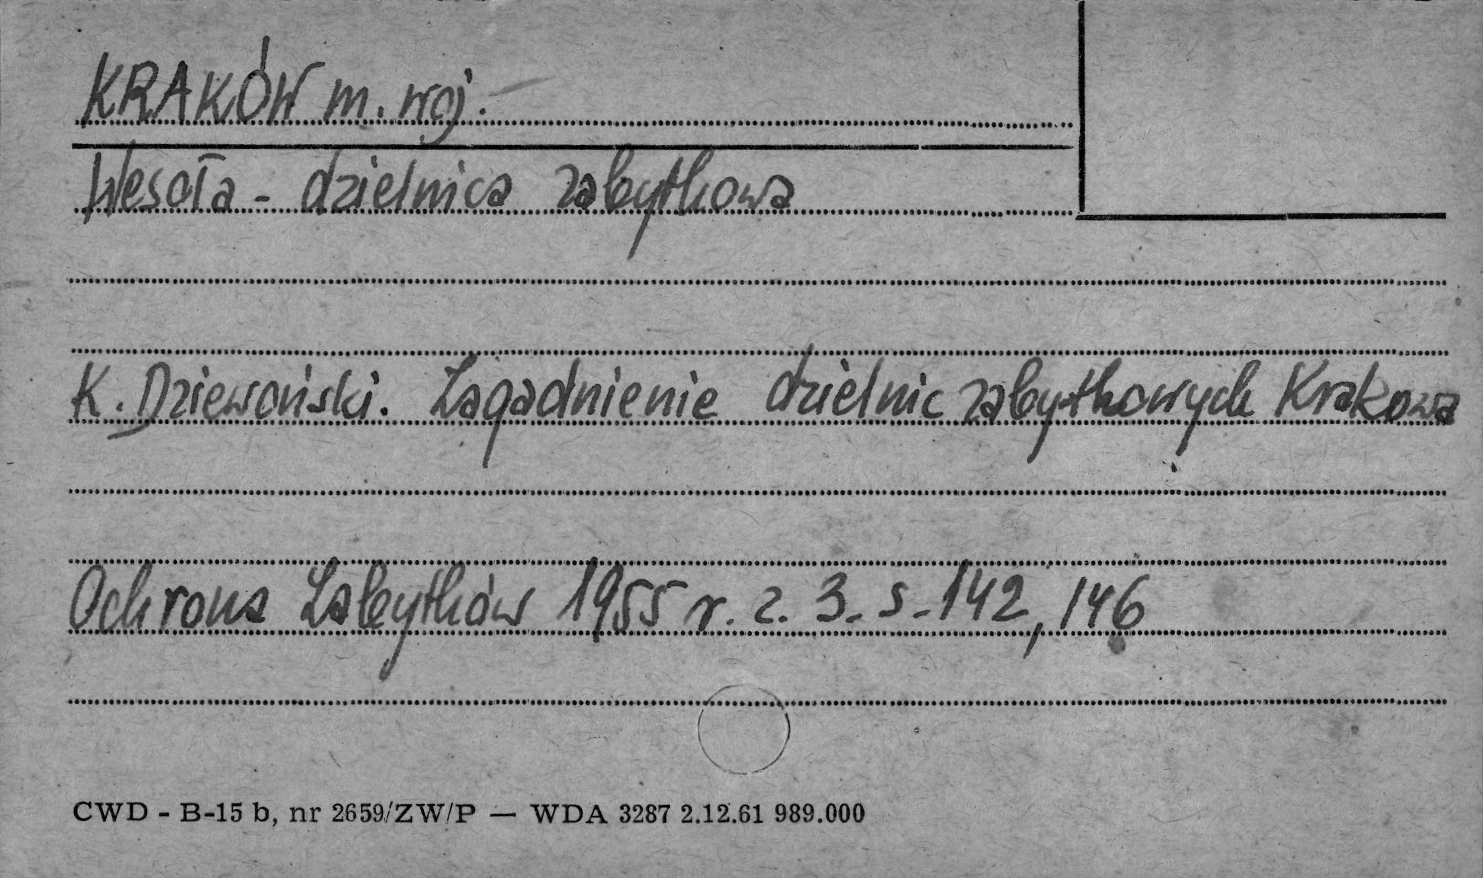 KRAKÓW m. woj.
Wesoła - dzielnica zabytkowa
K. Dziewoński. Zagadnienie dzielnic zabytkowych Krakowa
Ochrona Zabytków 1955 r. z. 3. s. 142, 146
CWD - B-15 b, nr 2659/ZW/P — WDA 3287 2.12.61 989.000